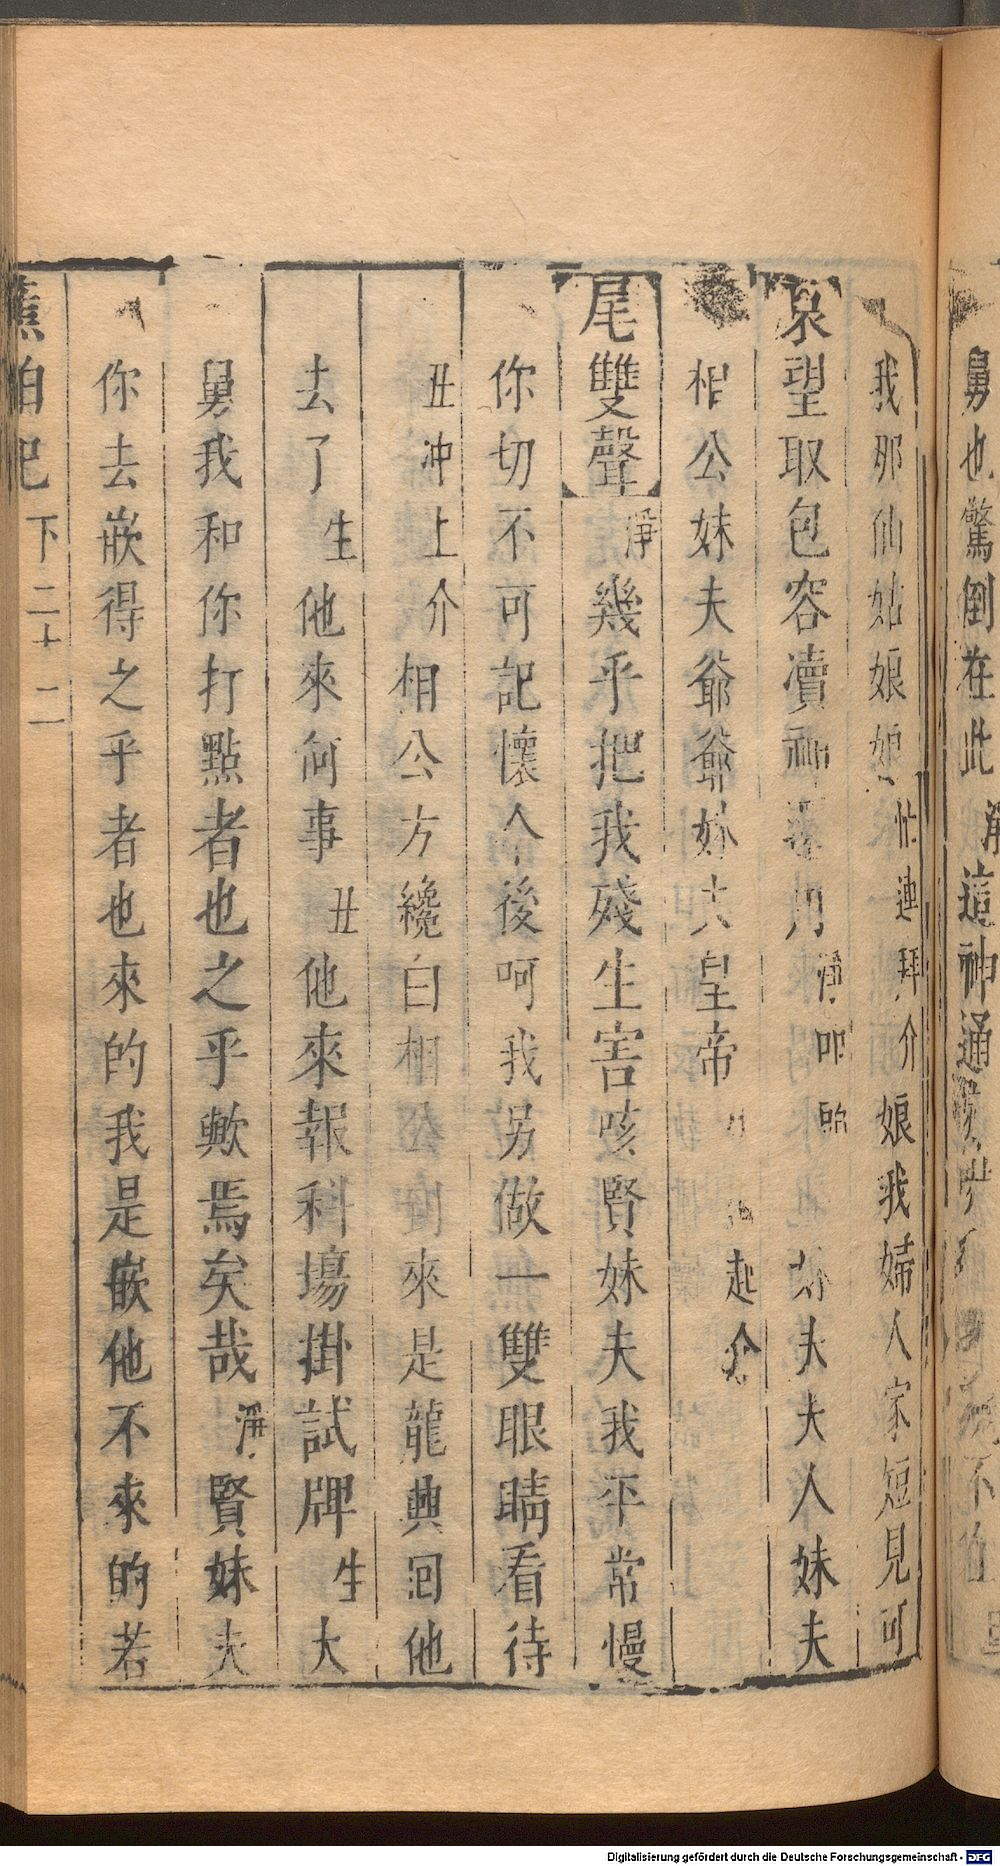 舅也驚倒在此淨這神通
我那仙姑娘娘忙連拜介娘我婦人家短見可
哀望取包容瀆神淨叩妹夫夫人妹夫
相公妹夫爺爺妹大皇帝起介
尾雙聲淨幾乎把我殘生害咳賢妹夫我平常慢
你切不可記懷今後呵我另做一雙眼睛看待
丑冲上介相公方纔白相公來是龍興回他
去了生他來何事丑他來報科場掛試牌生大
舅我和你打點者也之乎歟焉矣哉淨賢妹夫
你去嵌得之乎者也來的我是嵌他不來的若
蕉帕記 下二十二
Digitalisierung gefördert durch die Deutsche Forschungsgemeinschaft - DFG